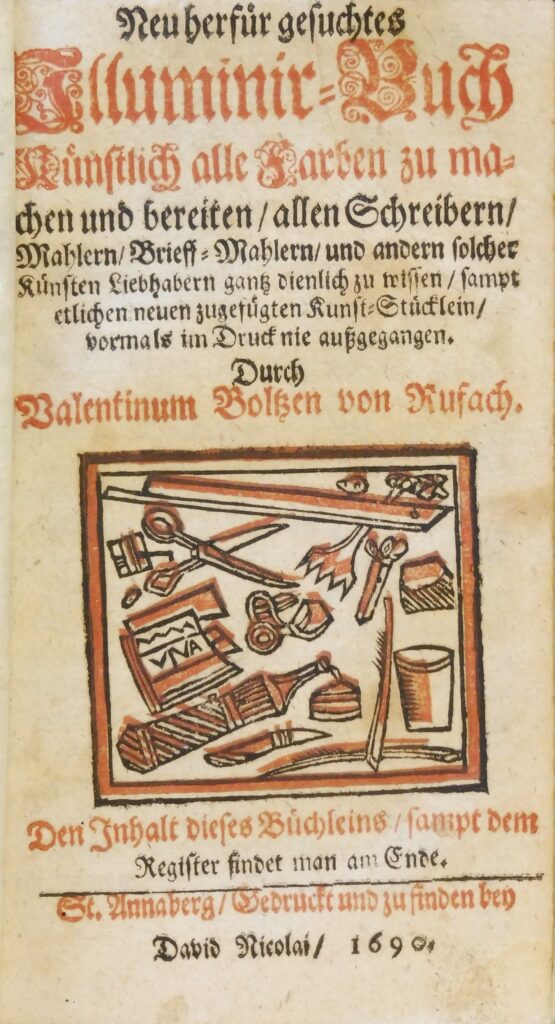 Neu herfür gesuchtes
Illuminir-Buch
Künstlich alle Farben zu ma-
chen und bereiten / allen Schreibern /
Mahlern / Brieff-Mahlern / und andern solcher
Künsten Liebhabern gantz dienlich zu wissen / sampt
etlichen neuen zugefügten Kunst-Stücklein /
vormals im Druck nie außgegangen.
Durch
Valentinum Boltzen von Rufach.
VIVA
Den Inhalt dieses Büchleins / sampt dem
Register findet man am Ende.
St. Annaberg / Gedruckt und zu finden bey
David Nicolai / 1690.